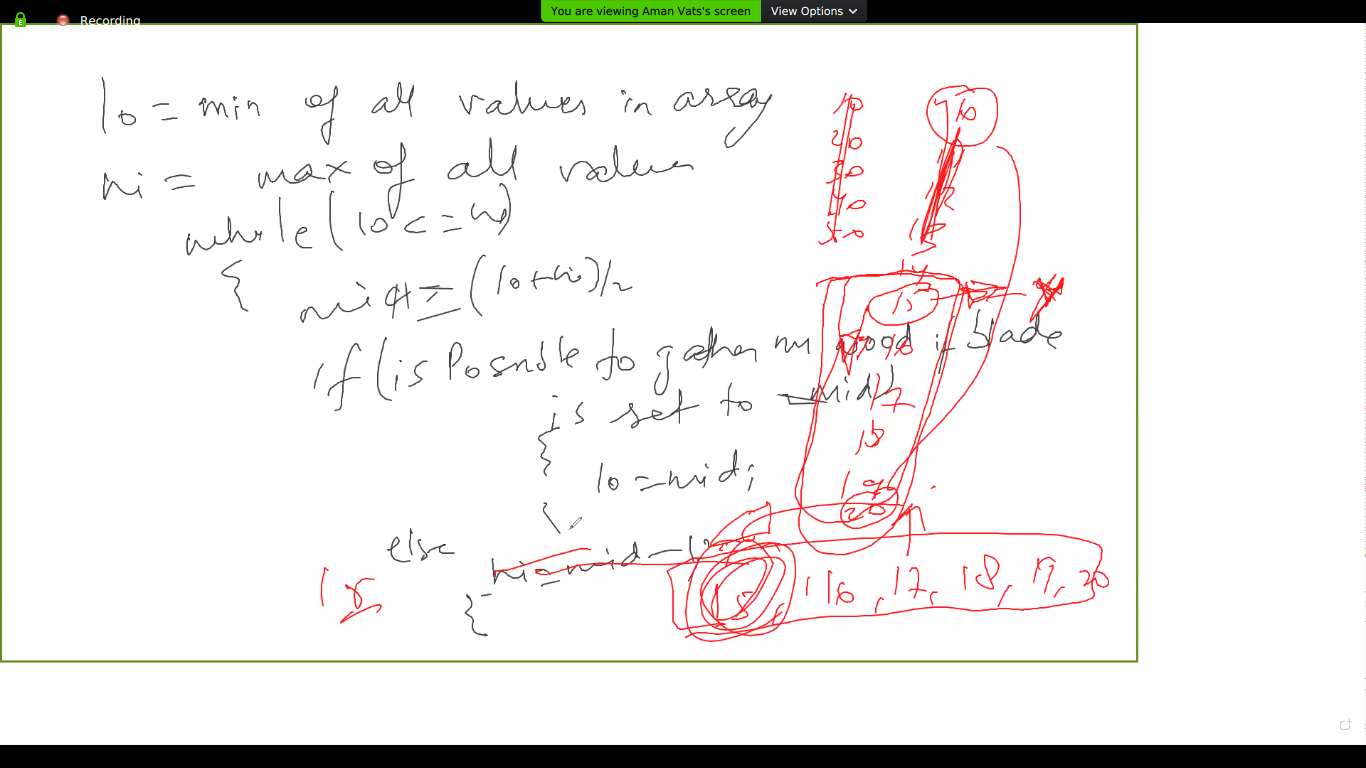 Recording
You are viewing Aman Vats's screen
View Options
lo = min of all values in array
hi = max of all values
while (lo <= hi)
{
mid = (lo+hi)/2
if (is Possible to gather m wood if blade
is set to mid)
{
lo = mid;
else
hi = mid - 1;
{
10
20
30
40
50
10
12
13
14
15
16
17
18
19
20
15, 16, 17, 18, 19, 20